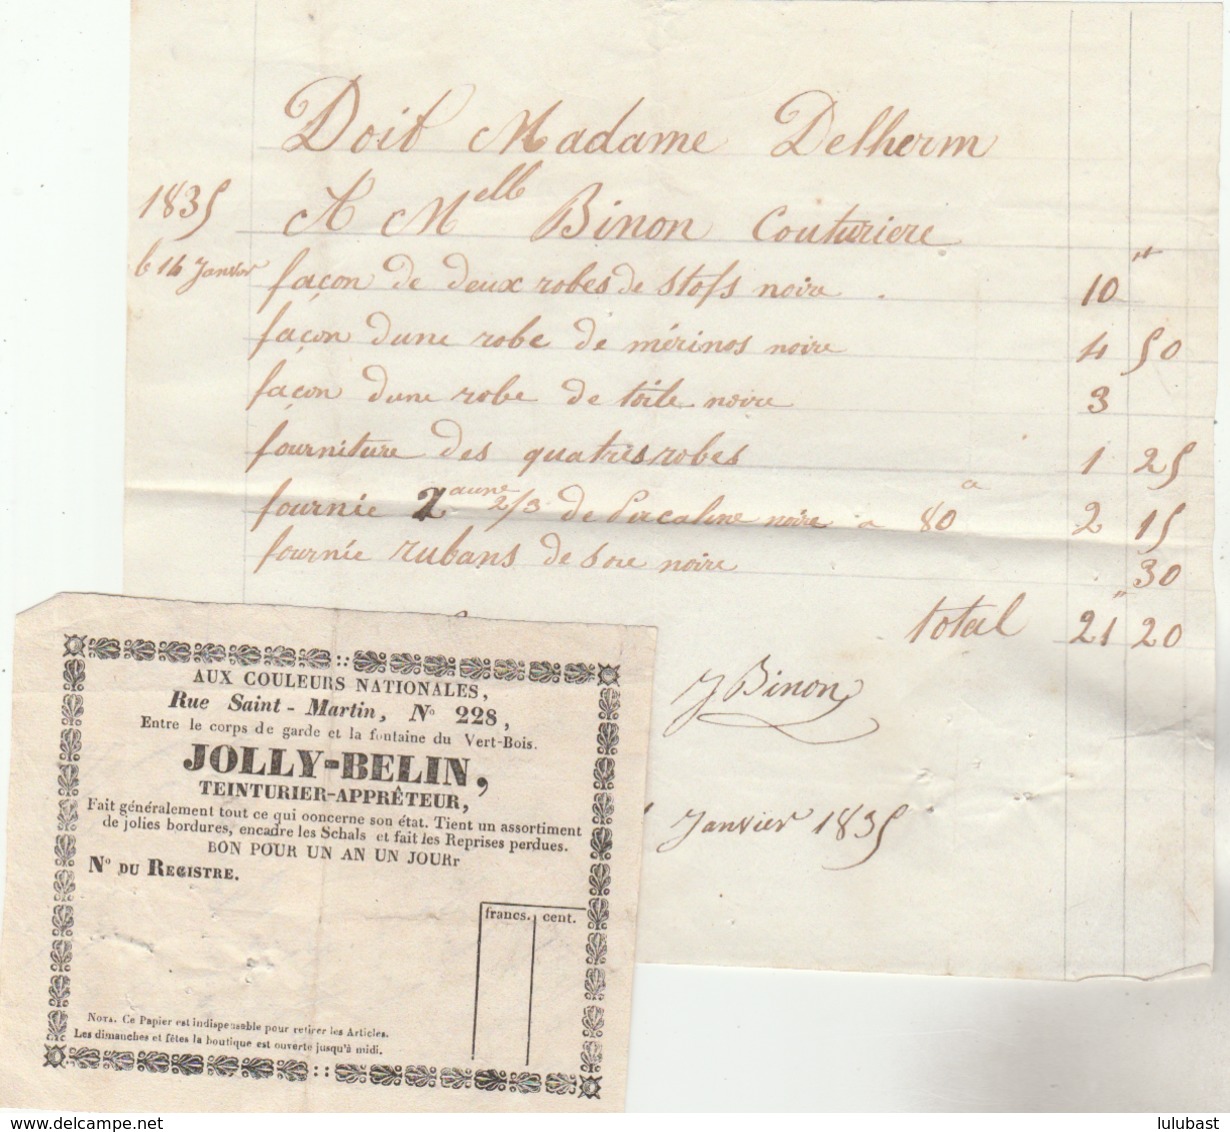 Doit Madame Delherm
1835 A Melle Binon Couturiere
le 14 Janvier façon de deux robes de stofs noire . 10 "
façon dune robe de mérinos noire 4 50
façon dune robe de toile noire 3
fourniture des quatres robes 1 25
fournie 2 aune 2/3 de Percaline noire a 80 2 15
fournée rubans de soie noire " 30
total 21 20
J Binon
Janvier 1835
AUX COULEURS NATIONALES,
Rue Saint-Martin, No 228,
Entre le corps de garde et la fontaine du Vert-Bois.
JOLLY-BELIN,
TEINTURIER-APPRÊTEUR,
Fait généralement tout ce qui concerne son état. Tient un assortiment
de jolies bordures, encadre les Schals et fait les Reprises perdues.
BON POUR UN AN UN JOURr
No DU REGISTRE.
francs. cent.
NOTA. Ce Papier est indispensable pour retirer les Articles.
Les dimanches et fêtes la boutique est ouverte jusqu'à midi.
delcampe.net
lulubast